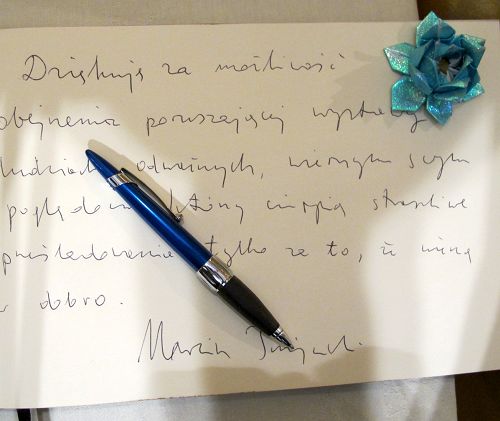 Dziękuję za możliwość
obejrzenia poruszającej wystawy
ludziach odważnych, wiernym swym
poglądom, którzy cierpią straszliwe
prześladowania tylko za to, że wierzą
w dobro.
Marcin